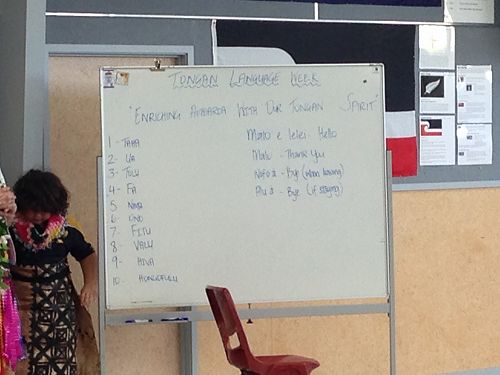 TONGAN LANGUAGE WEEK
"ENRICHING AOTEAROA WITH OUR TONGAN SPIRIT"
1 - TAHA
2 - UA
3 - TOLU
4 - FA
5 NIMA
6 - ONO
7 - FITU
8 - VALU
9 - HIVA
10 - HONGOFULU
Malo e lelei - Hello
Malo - Thank you
Nofo a - Bye (when leaving)
Alu a - Bye (if staying)